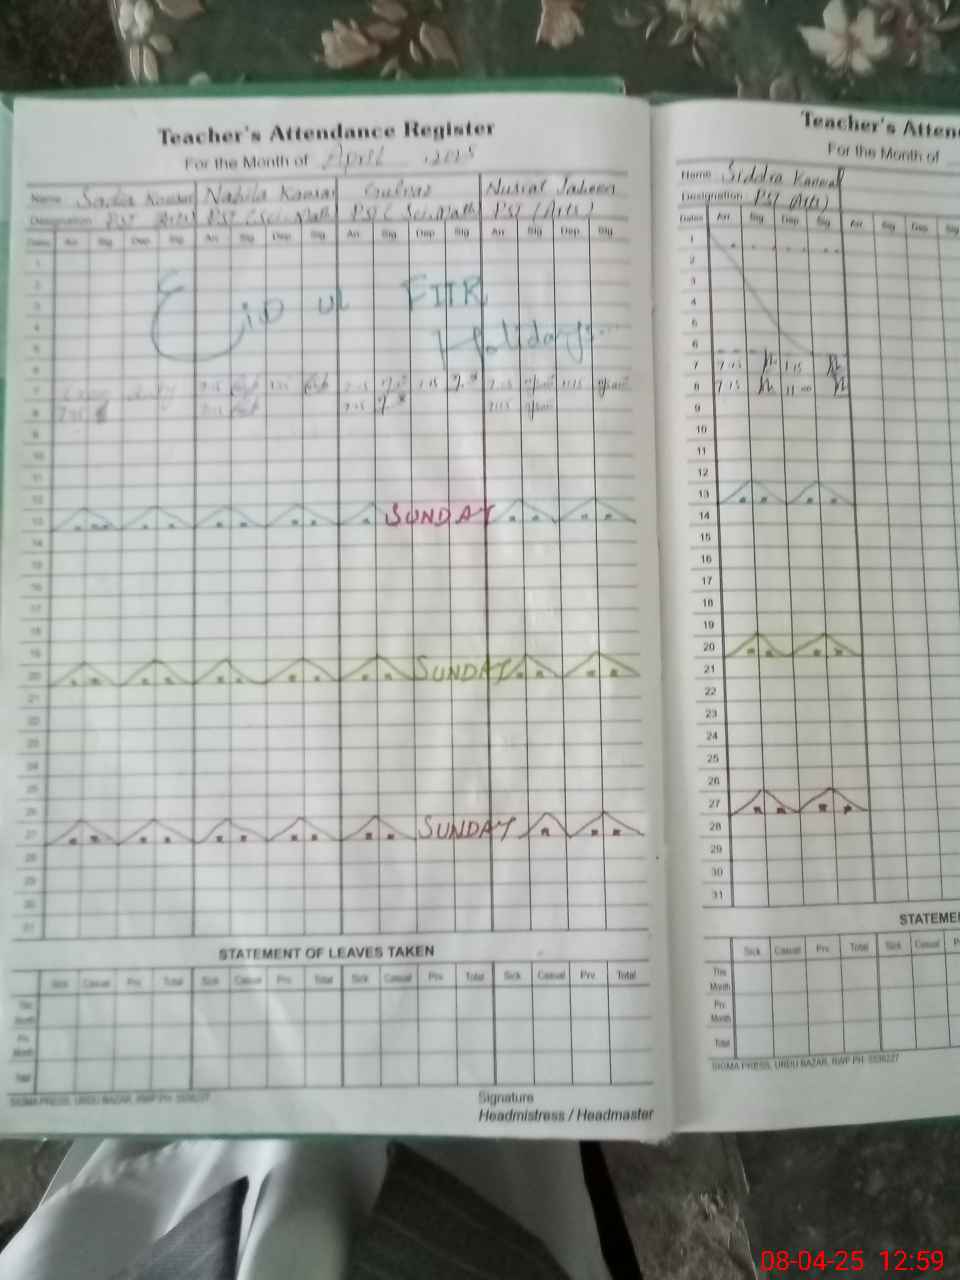 Teacher's Attendance Register
For the Month of April 2025
Name Sadia Kousar Nabila Kousar Gulnaz Nusrat Jabeen
Designation PST Arts PST (Sci. Math) PST (Sci. Math) PST (Arts)
Dates Arr. Sig. Dep. Sig. Arr. Sig. Dep. Sig. Arr. Sig. Dep. Sig. Arr. Sig. Dep. Sig.
1
2
Eid ul FITR
3
4
Holidays
5
6
7 7:15 1:15 7:15 1:15 7:15
8 7:15 7:15 7:15 7:15
9
10
11
12
13 SUNDAY
14
15
16
17
18
19
20 SUNDAY
21
22
23
24
25
26
27 SUNDAY
28
29
30
31
STATEMENT OF LEAVES TAKEN
Sick Casual Prv. Total Sick Casual Prv. Total Sick Casual Prv. Total Sick Casual Prv. Total
This Month
Prv. Month
Total
SIGMA PRESS, URDU BAZAR, RWP PH: 5536227
Signature
Headmistress / Headmaster
Teacher's Atten
For the Month of
Name Siddra Kanwal
Designation PST (Arts)
Dates Arr. Sig. Dep. Sig. Arr. Sig. Dep. Sig
1
2
3
4
5
6
7 7:15 1:15
8 7:15 11:00
9
10
11
12
13
14
15
16
17
18
19
20
21
22
23
24
25
26
27
28
29
30
31
STATEME
Sick Casual Prv. Total Sick Casual P
This Month
Prv. Month
Total
SIGMA PRESS, URDU BAZAR, RWP PH: 5536227
08-04-25 12:59